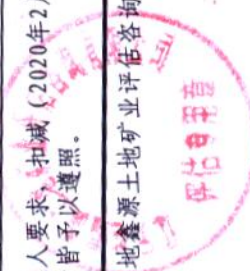 人要求，扣减（2020年2月
皆予以遵照。
地鑫源土地矿业评估咨询
评估专用章